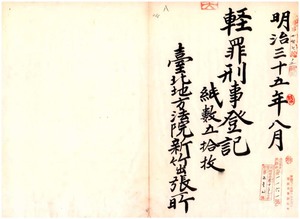 明治三十五年八月
輕罪刑事登記
紙數五拾枚
臺北地方法院新竹出張所